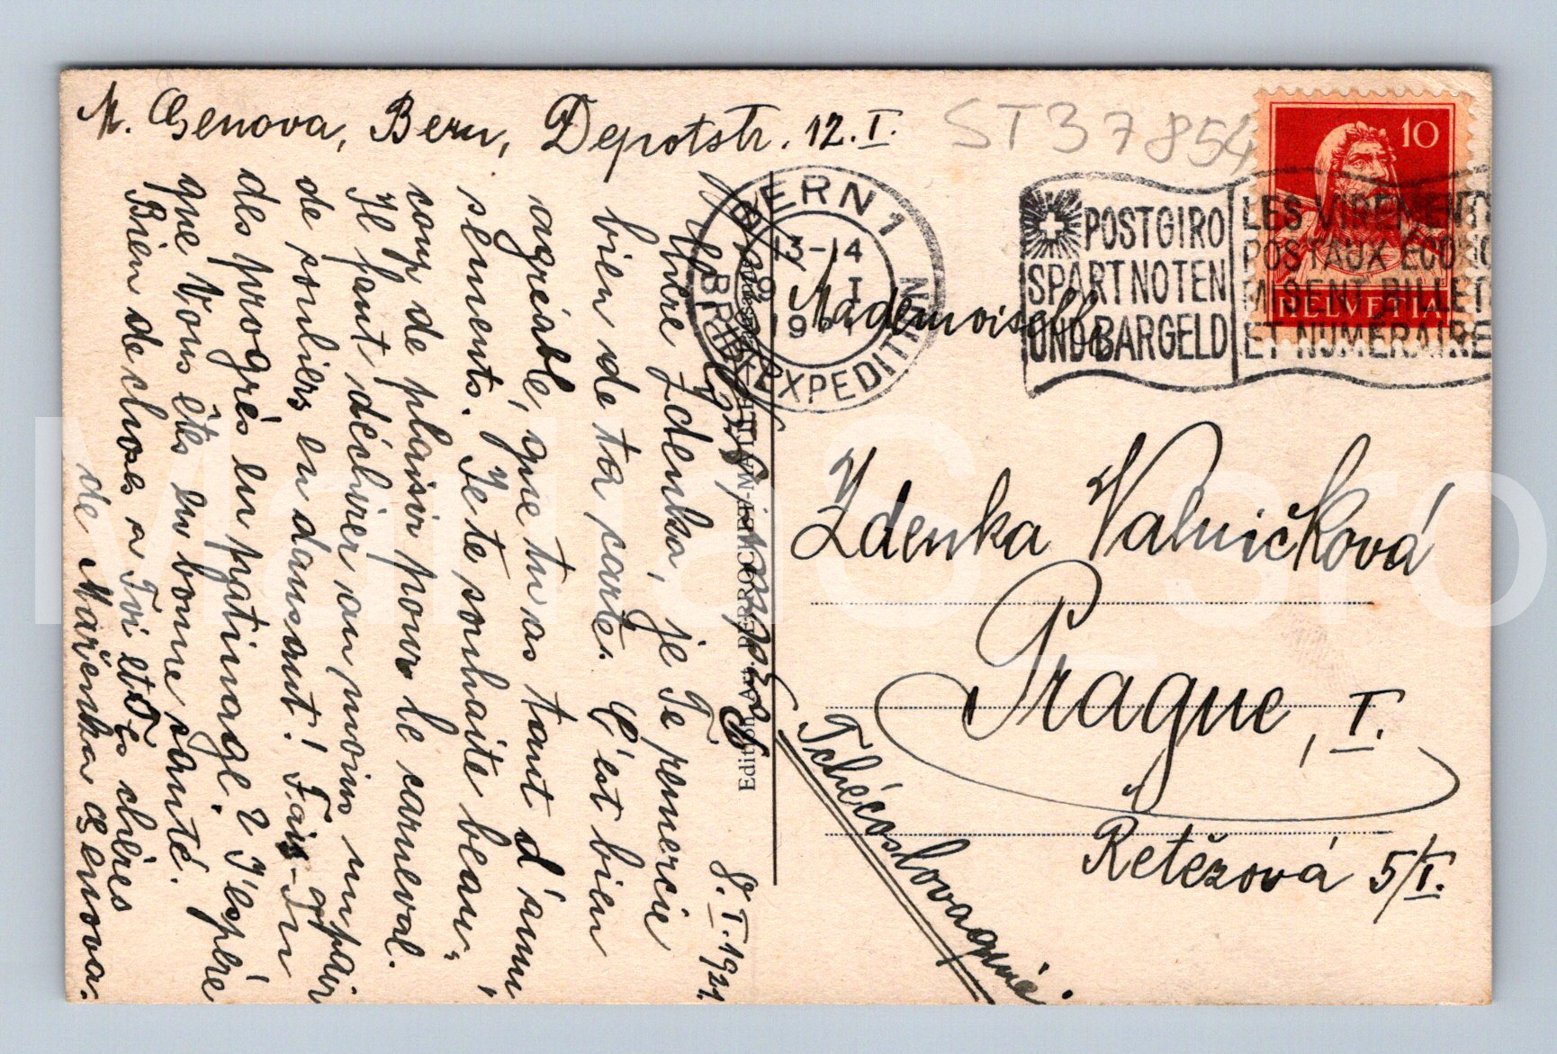 M. Genova, Bern, Depotstr. 12.I.
ST37854
8.I.1921.
Chère Zdenka, je Te remercie
bien de ta carte. C'est bien
agréable, que tu as tant d'amu,
sements. Je te souhaite beau,
coup de plaisir pour le carneval.
Il faut déchirer au moins un pair
de souliers en dansant! Fais-Tu
des progrès en patinage? J'espère
que Vous êtes en bonne santé.
Bien de choses a Toi et à Tes chères
de Mařenka Genova.
Edition
BERN 1
13-14
I
BRIEFEXPEDITION
POSTGIRO
SPART NOTEN
UND BARGELD
LES VIREMENTS
POSTAUX ÉCONO
MISENT BILLET
ET NUMÉRAIRE
10
HELVETIA
Mademoiselle
Zdenka Valničková
Prague, I.
Retězová 5/I.
Tchécoslovaquie.
MaliaC sro